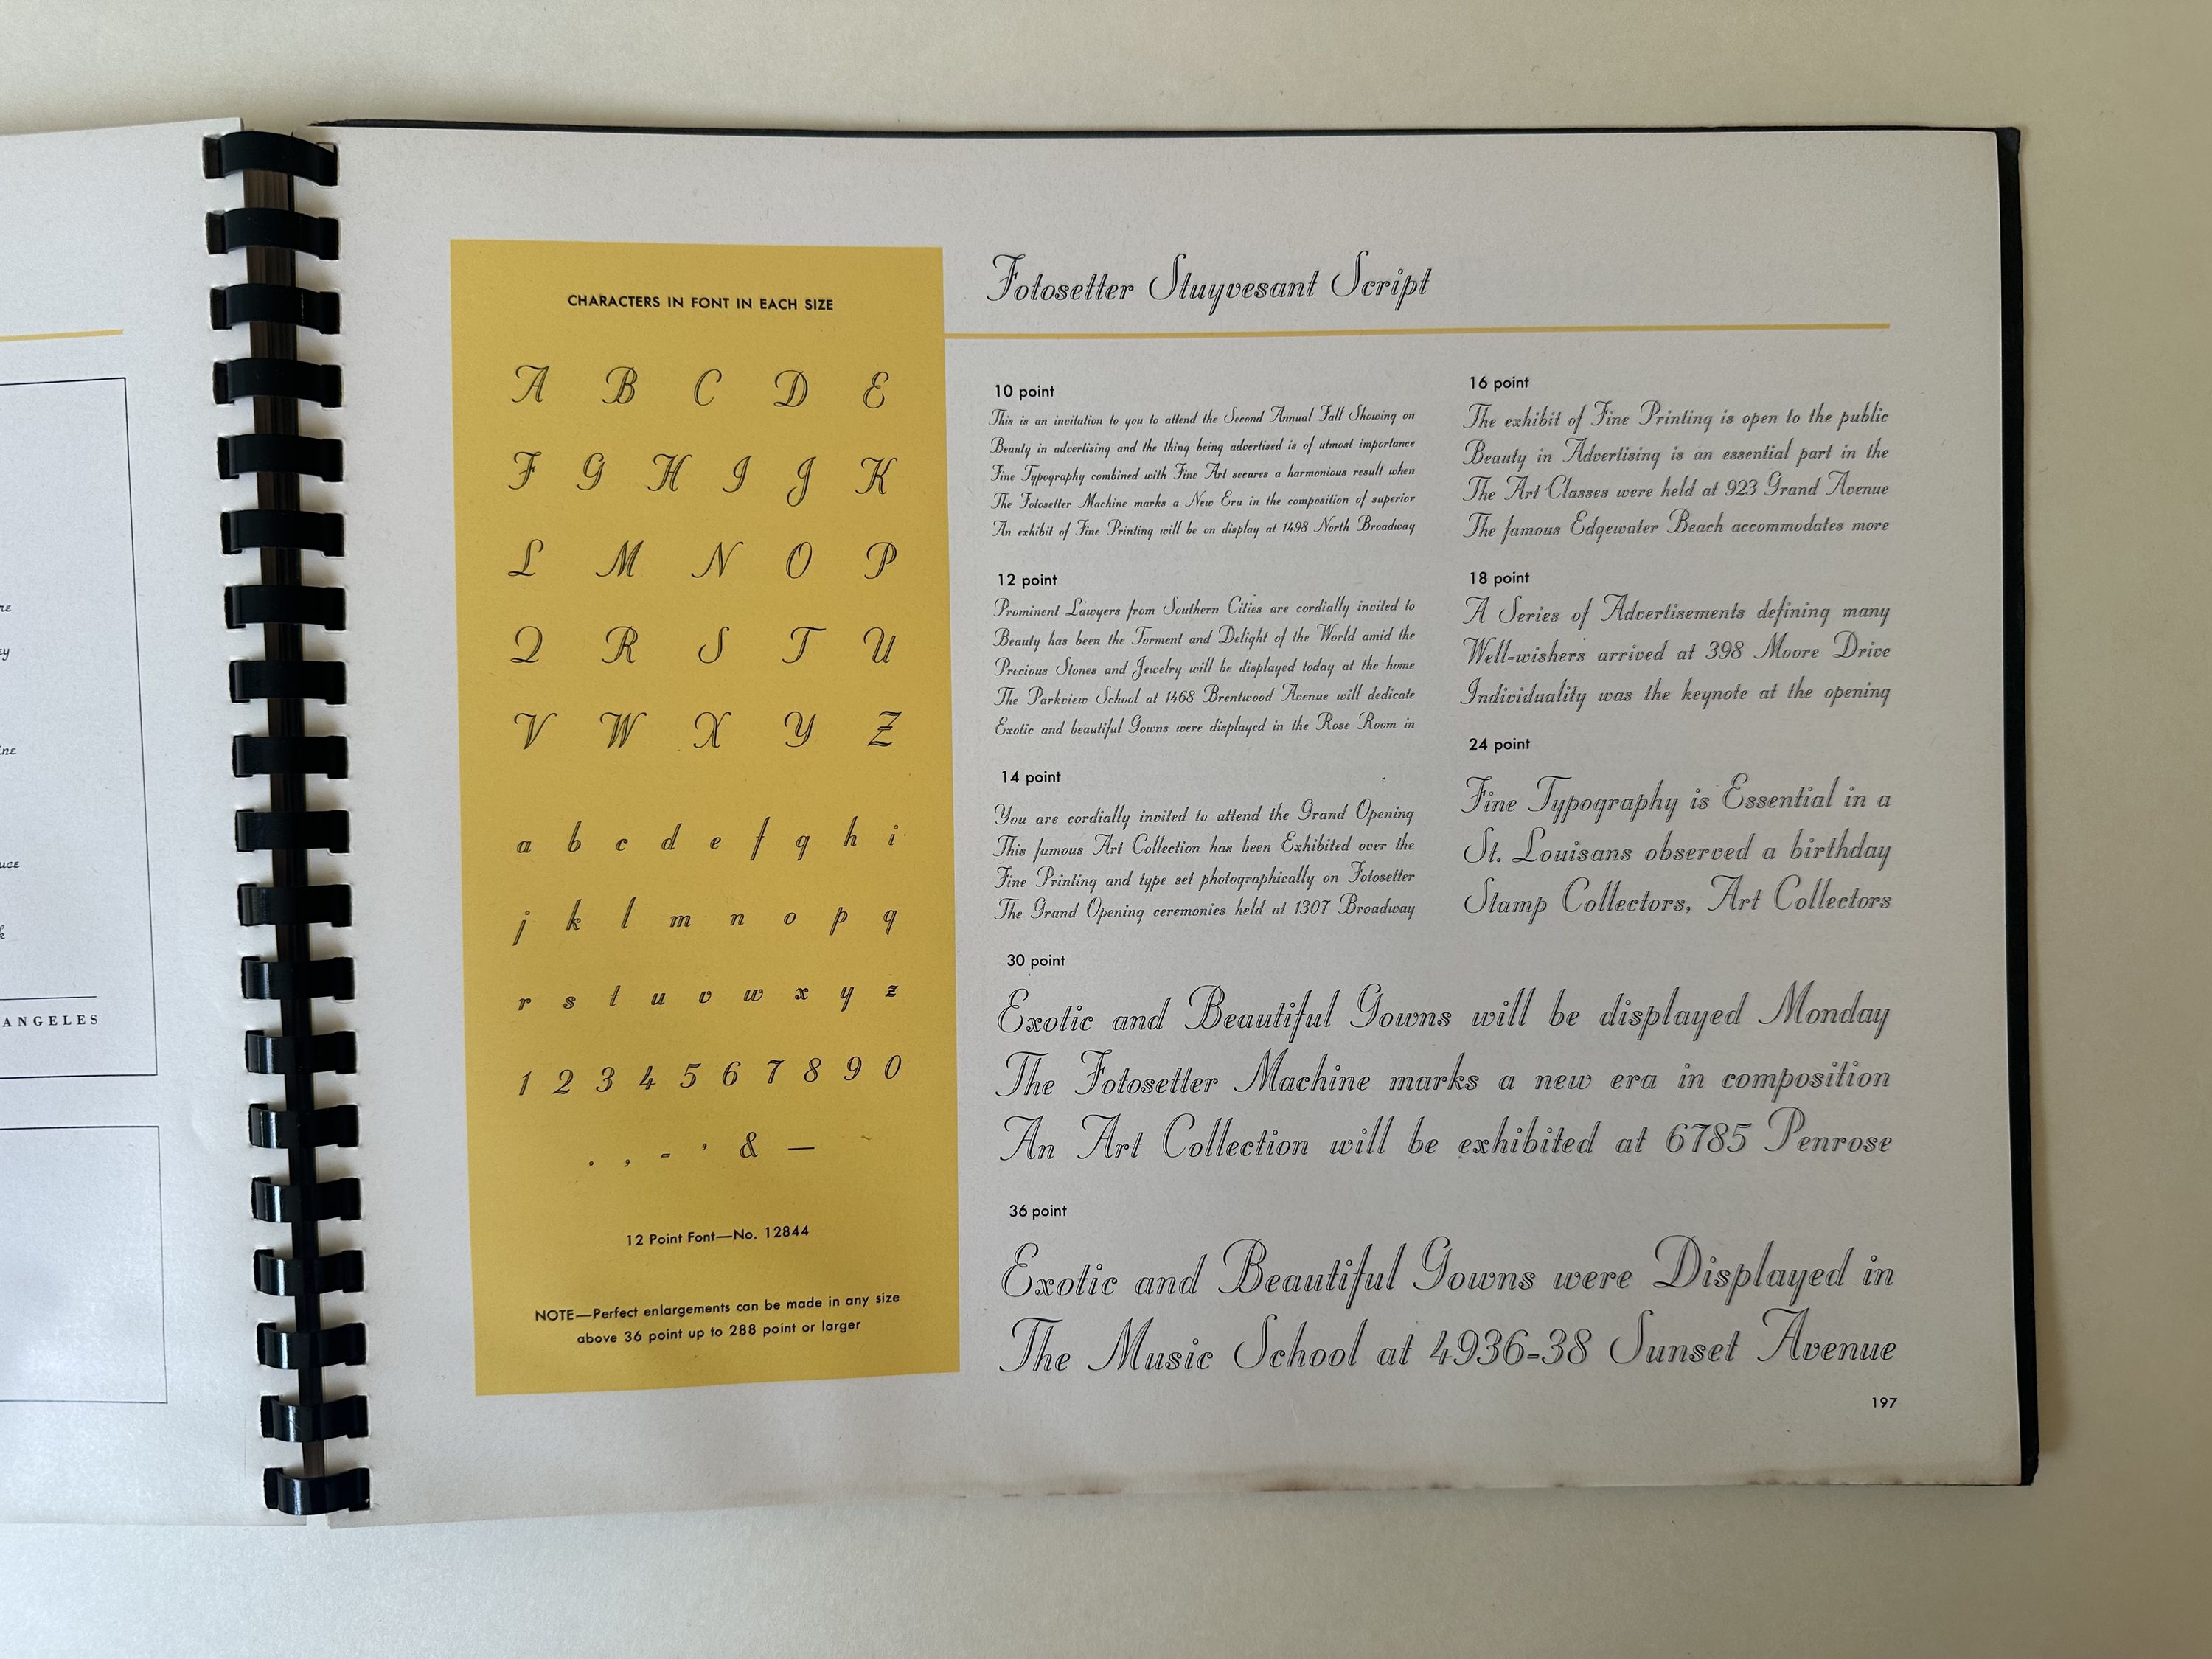 ANGELES
CHARACTERS IN FONT IN EACH SIZE
A B C D E
F G H I J K
L M N O P
Q R S T U
V W X Y Z
a b c d e f g h i
j k l m n o p q
r s t u v w x y z
1 2 3 4 5 6 7 8 9 0
. , - ' & —
12 Point Font—No. 12844
NOTE—Perfect enlargements can be made in any size
above 36 point up to 288 point or larger
Fotosetter Stuyvesant Script
10 point
This is an invitation to you to attend the Second Annual Fall Showing on
Beauty in advertising and the thing being advertised is of utmost importance
Fine Typography combined with Fine Art secures a harmonious result when
The Fotosetter Machine marks a New Era in the composition of superior
An exhibit of Fine Printing will be on display at 1498 North Broadway
12 point
Prominent Lawyers from Southern Cities are cordially invited to
Beauty has been the Torment and Delight of the World amid the
Precious Stones and Jewelry will be displayed today at the home
The Parkview School at 1468 Brentwood Avenue will dedicate
Exotic and beautiful Gowns were displayed in the Rose Room in
14 point
You are cordially invited to attend the Grand Opening
This famous Art Collection has been Exhibited over the
Fine Printing and type set photographically on Fotosetter
The Grand Opening ceremonies held at 1307 Broadway
16 point
The exhibit of Fine Printing is open to the public
Beauty in Advertising is an essential part in the
The Art Classes were held at 923 Grand Avenue
The famous Edgewater Beach accommodates more
18 point
A Series of Advertisements defining many
Well-wishers arrived at 398 Moore Drive
Individuality was the keynote at the opening
24 point
Fine Typography is Essential in a
St. Louisans observed a birthday
Stamp Collectors, Art Collectors
30 point
Exotic and Beautiful Gowns will be displayed Monday
The Fotosetter Machine marks a new era in composition
An Art Collection will be exhibited at 6785 Penrose
36 point
Exotic and Beautiful Gowns were Displayed in
The Music School at 4936-38 Sunset Avenue
197